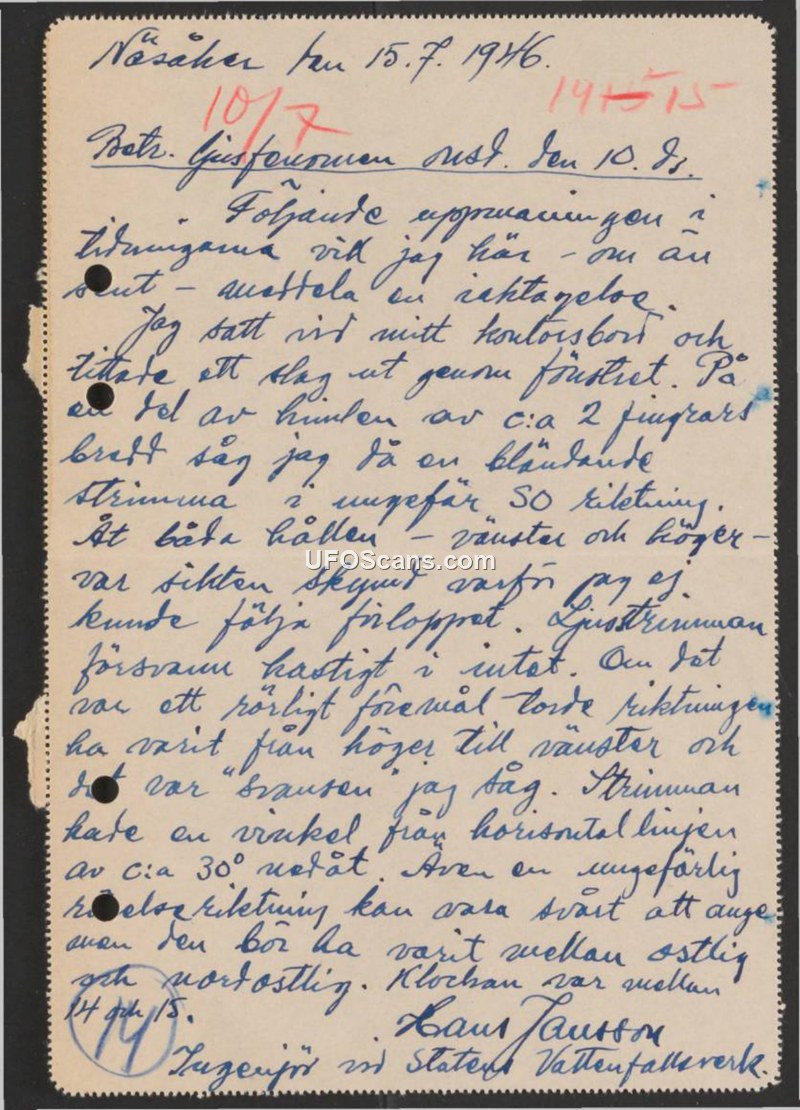 Näsåker den 15.7.1946.
10/7
1415 15
Betr. ljusfenomen onsd. den 10. ds.
Följande uppmaningen i
tidningarna vill jag här – om än
sent – meddela en iakttagelse.
Jag satt vid mitt kontorsbord och
tittade ett slag ut genom fönstret. På
en del av himlen av c:a 2 fingrars
bredd såg jag då en bländande
strimma i ungefär SO riktning.
Åt båda hållen – vänster och höger –
var sikten skymd varför jag ej
UFOScans.com
kunde följa förloppet. Ljusstrimman
försvann hastigt i intet. Om det
var ett rörligt föremål torde riktningen
ha varit från höger till vänster och
det var "svansen" jag såg. Strimman
hade en vinkel från horisontallinjen
av c:a 30° nedåt. Även en ungefärlig
rörelseriktning kan vara svårt att ange
men den bör ha varit mellan ostlig
och nordostlig. Klockan var mellan
14 och 15.
14
Hans Jansson
Ingenjör vid Statens Vattenfallsverk.